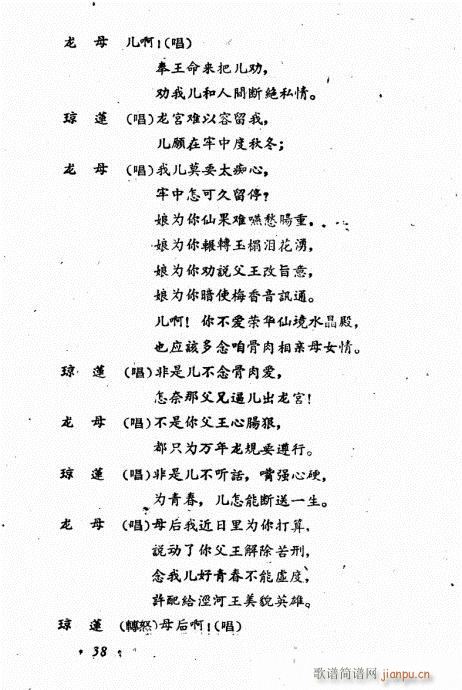 龙　母　儿啊！(唱)
奉王命来把儿劝，
劝我儿和人間断絶私情。
琼　莲　(唱)龙宫难以容留我，
儿願在牢中度秋冬；
龙　母　(唱)我儿莫要太痴心，
牢中怎可久留停？
娘为你仙果难嚥愁腸重，
娘为你輾轉玉榻泪花湧，
娘为你劝説父王改旨意，
娘为你暗使梅香音訊通。
儿啊！你不爱荣华仙境水晶殿，
也应該多念咱骨肉相亲母女情。
琼　莲　(唱)非是儿不念骨肉爱，
怎奈那父兄逼儿出龙宫！
龙　母　(唱)不是你父王心腸狠，
都只为万年龙規要遵行。
琼　莲　(唱)非是儿不听話，嘴强心硬，
为青春，儿怎能断送一生。
龙　母　(唱)母后我近日里为你打算，
説动了你父王解除苦刑，
念我儿好青春不能虛度，
許配給涇河王美貌英雄。
琼　莲　(轉怒)母后啊！(唱)
· 38 ·
歌谱简谱网
jianpu.cn